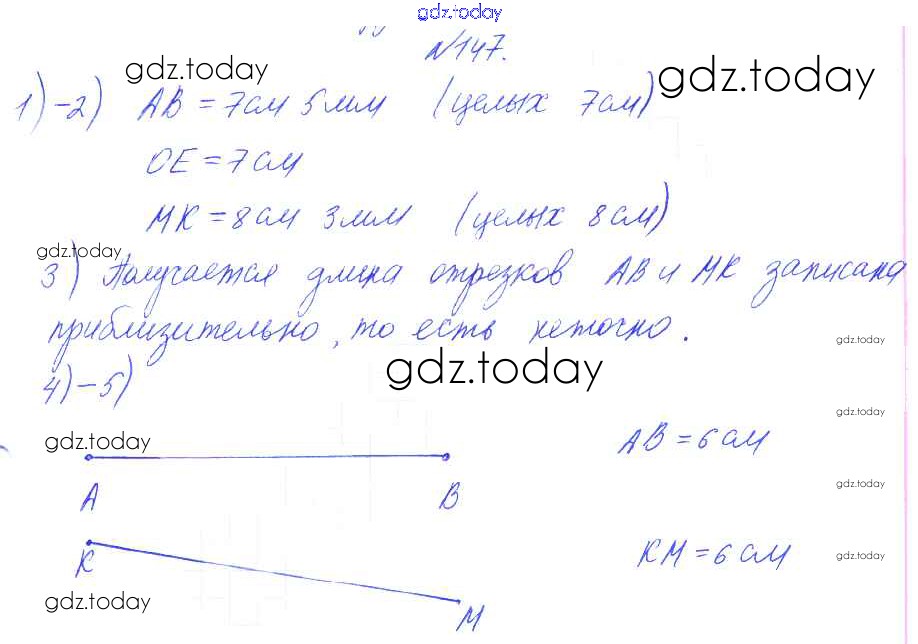 gdz.today
№147.
gdz.today
gdz.today
1)-2) AB = 7см 5мм (целых 7см)
OE = 7см
MK = 8см 3мм (целых 8см)
gdz.today
3) Получается длина отрезков AB и MK записана
приблизительно, то есть неточно.
gdz.today
gdz.today
4)-5)
gdz.today
gdz.today
AB = 6см
A B
gdz.today
K
KM = 6см
gdz.today
gdz.today
M